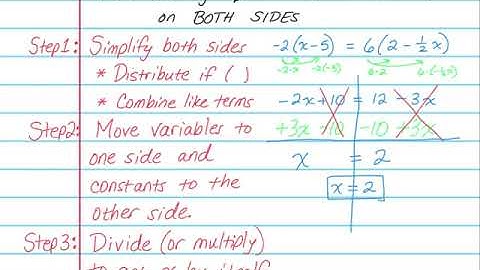 on BOTH SIDES
Step1: Simplify both sides -2(x-5) = 6(2-½x)
* Distribute if ( ) -2·x -2(-5) 6·2 6·(-½x)
* Combine like terms -2x+10 = 12 -3x
Step2: Move variables to +3x -10 -10 +3x
one side and x = 2
constants to the x=2
other side.
Step3: Divide (or multiply)
to get x by itself